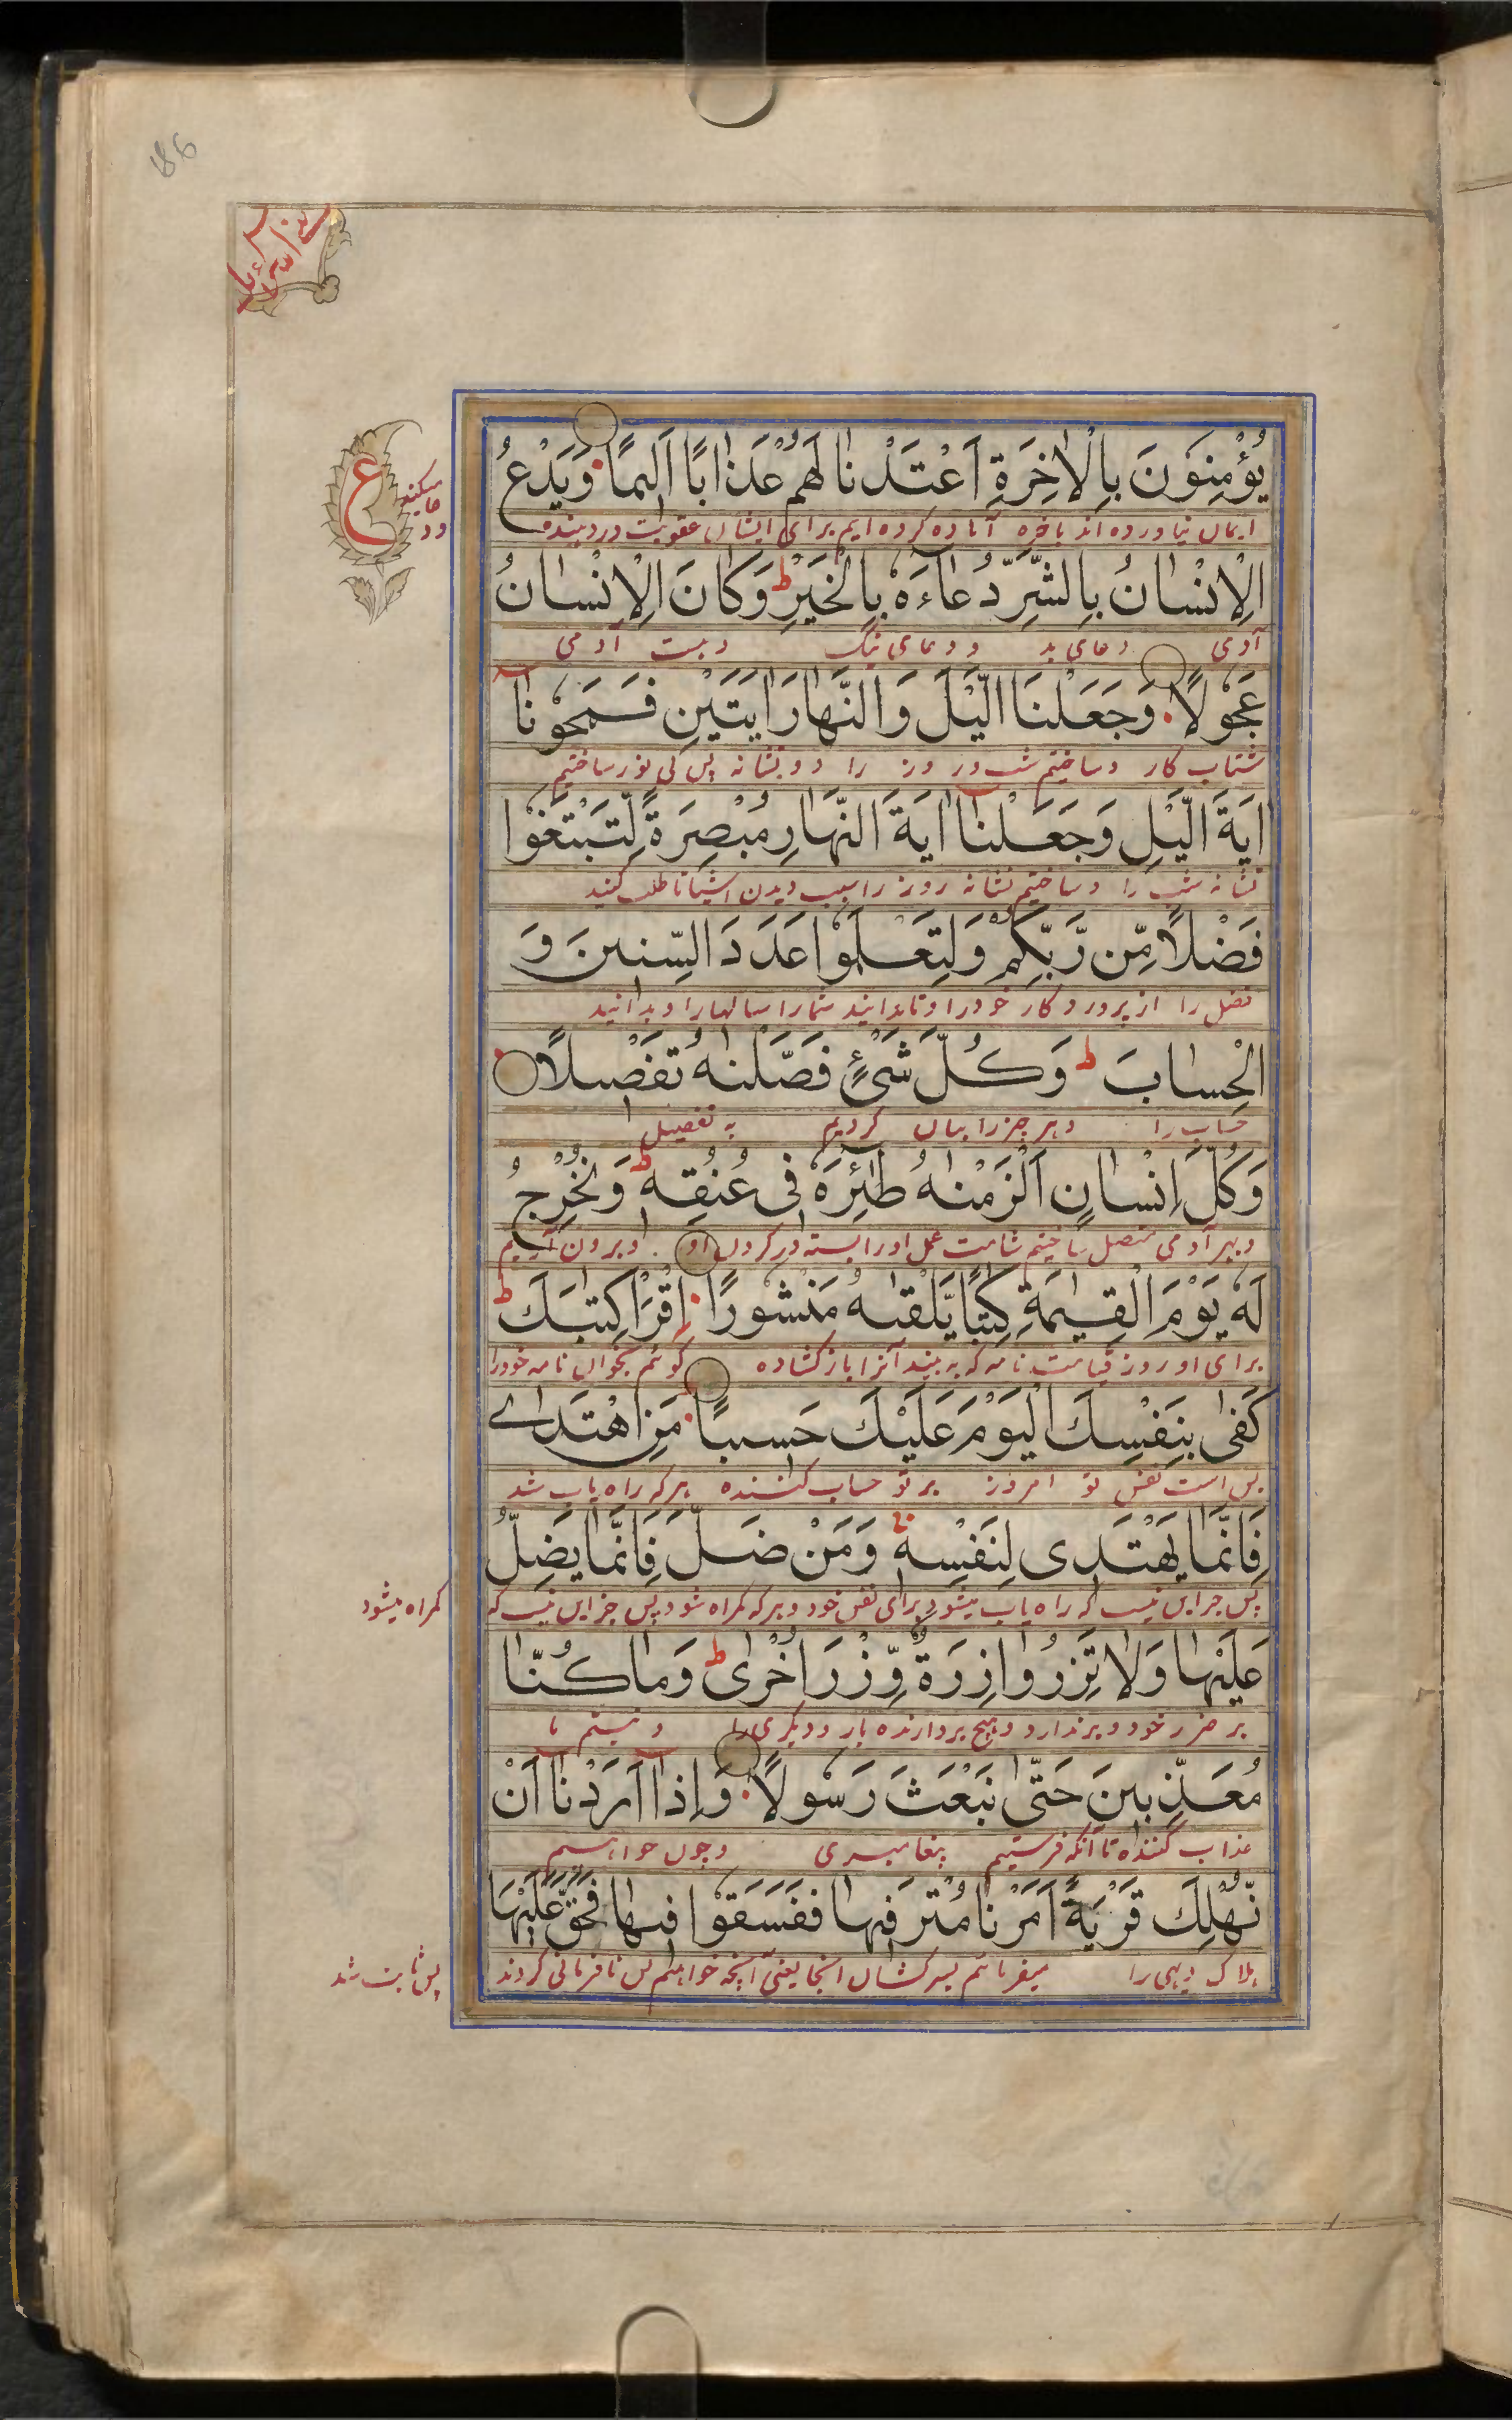 186
بنی اسرائیل
يُؤْمِنُونَ بِالْاٰخِرَةِ اَعْتَدْنَا لَهُمْ عَذَابًا اَلٖيمًا وَيَدْعُ
ع
ایمان نیاورده اند باخره آماده کرده ایم برای ایشان عقوبت درد دهنده
ود عا میکند
الْاِنْسَانُ بِالشَّرِّ دُعَاءَهٗ بِالْخَيْرِ ط وَكَانَ الْاِنْسَانُ
آدمی دعای بد و دعای نیک و هست آدمی
عَجُولًا وَجَعَلْنَا الَّيْلَ وَالنَّهَارَ اٰيَتَيْنِ فَمَحَوْنَا
شتاب کار و ساختیم شب و روز را دو نشانه پس بی نور ساختیم
اٰيَةَ الَّيْلِ وَجَعَلْنَا اٰيَةَ النَّهَارِ مُبْصِرَةً لِّتَبْتَغُوْا
نشانه شب را و ساختیم نشانه روز را سبب دیدن اشیا تا طلب کنید
فَضْلًا مِّن رَّبِّكُمْ وَلِتَعْلَمُوْا عَدَدَ السِّنٖينَ وَ
فضل را از پروردگار خود را و تا بدانید شمار سالها را و بدانید
الْحِسَابَ ط وَكُلَّ شَيْءٍ فَصَّلْنٰهُ تَفْصٖيلًا
حساب را و هر چیز را بیان کردیم به تفصیل
وَكُلَّ اِنْسَانٍ اَلْزَمْنٰهُ طٰٓئِرَهٗ فٖى عُنُقِهٖ ط وَنُخْرِجُ
و بهر آدمی متصل ساختیم شامت عمل او را بسته در گردن او و برون آریم
لَهٗ يَوْمَ الْقِيٰمَةِ كِتٰبًا يَّلْقٰىهُ مَنْشُورًا اِقْرَاْ كِتٰبَكَ ط
برای او روز قیامت نامه که به بیند آنرا باز کشاده گوئیم بخوان نامه خود را
كَفٰى بِنَفْسِكَ الْيَوْمَ عَلَيْكَ حَسٖيبًا مَنِ اهْتَدٰى
بس است نفس تو امروز بر تو حساب کننده هر که راه یاب شد
فَاِنَّمَا يَهْتَدٖى لِنَفْسِهٖ وَمَنْ ضَلَّ فَاِنَّمَا يَضِلُّ
پس جز این نیست که راه یاب میشود برای نفس خود و هر که گمراه شود پس جز این نیست که
گمراه میشود
عَلَيْهَا وَلَا تَزِرُ وَازِرَةٌ وِّزْرَ اُخْرٰى ط وَمَا كُنَّا
بر ضرر خود و برندارد هیچ بردارنده بار دیگری را و نیستیم ما
مُعَذِّبٖينَ حَتّٰى نَبْعَثَ رَسُولًا وَاِذَا اَرَدْنَا اَنْ
عذاب کننده تا آنکه فرستیم پیغامبری و چون خواهیم
نُّهْلِكَ قَرْيَةً اَمَرْنَا مُتْرَفٖيهَا فَفَسَقُوْا فٖيهَا فَحَقَّ عَلَيْهَا
هلاک دیهی را میفرمائیم بسرکشان آنجا یعنی آنچه خواهیم پس نافرمانی کردند
پس ثابت شد